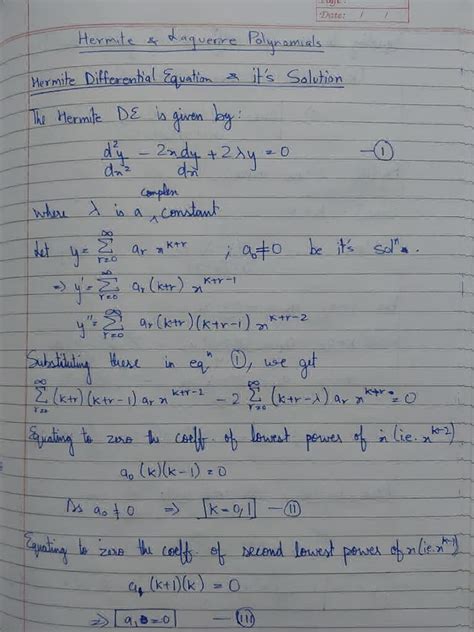 Date: / /
Hermite & Laguerire Polynomials
Hermite Differential Equation & it's Solution
The Hermite DE is given by:
d²y/dx² - 2x dy/dx + 2λy = 0 — (I)
where λ is a complex constant
Let y = ∑_{r=0}^{∞} a_r x^{k+r} ; a₀ ≠ 0 be it's solⁿ.
⇒ y' = ∑_{r=0}^{∞} a_r (k+r) x^{k+r-1}
y'' = ∑_{r=0}^{∞} a_r (k+r)(k+r-1) x^{k+r-2}
Substituting these in eqⁿ (I), we get
∑_{r=0}^{∞} (k+r)(k+r-1) a_r x^{k+r-2} - 2 ∑_{r=0}^{∞} (k+r-λ) a_r x^{k+r} = 0
Equating to zero the coeff. of lowest power of x (i.e. x^{k-2})
a₀(k)(k-1) = 0
As a₀ ≠ 0 ⇒ [k=0,1] — (II)
Equating to zero the coeff. of second lowest power of x (i.e. x^{k-1})
a₁ (k+1)(k) = 0
⇒ [a₁ = 0] — (III)